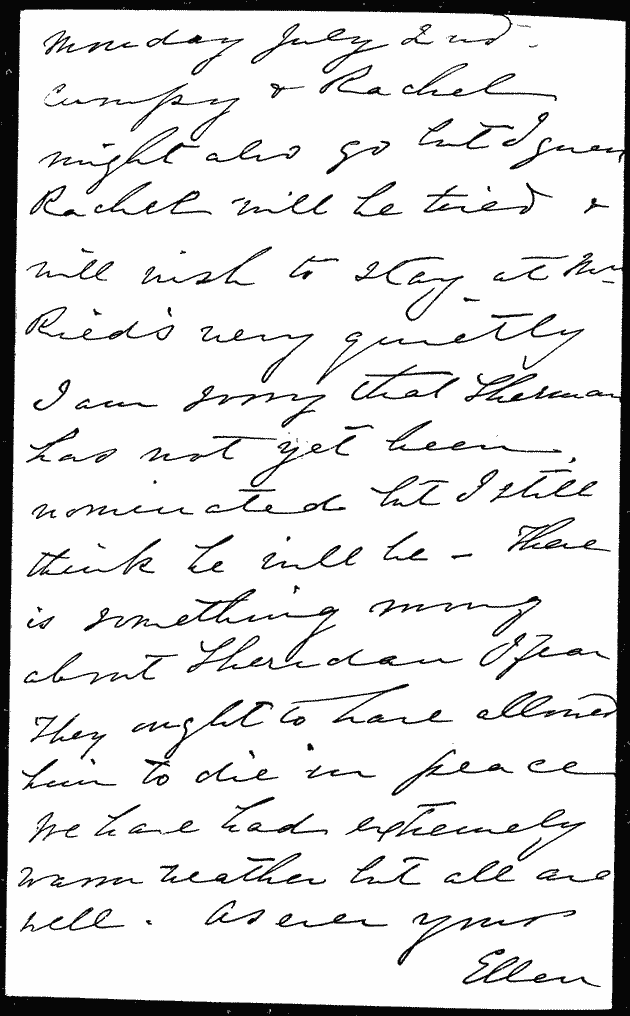 Monday July 2nd.
Cumpy & Rachel
might also go but I guess
Rachel will be tired &
will wish to stay at Mrs
Ried's very quietly
I am sorry that Sherman
has not yet been
nominated but I still
think he will be – There
is something wrong
about Sheridan I fear
They ought to have allowed
him to die in peace
We have had extremely
warm weather but all are
well. As ever yours
Ellen